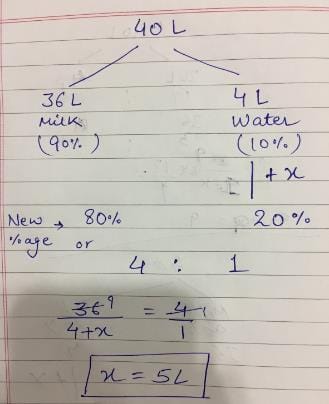 40 L
36 L 4 L
Milk Water
(90%) (10%)
+ x
New → 80% 20%
%age or
4 : 1
36 9 = 4 1
4+x 1
x = 5L